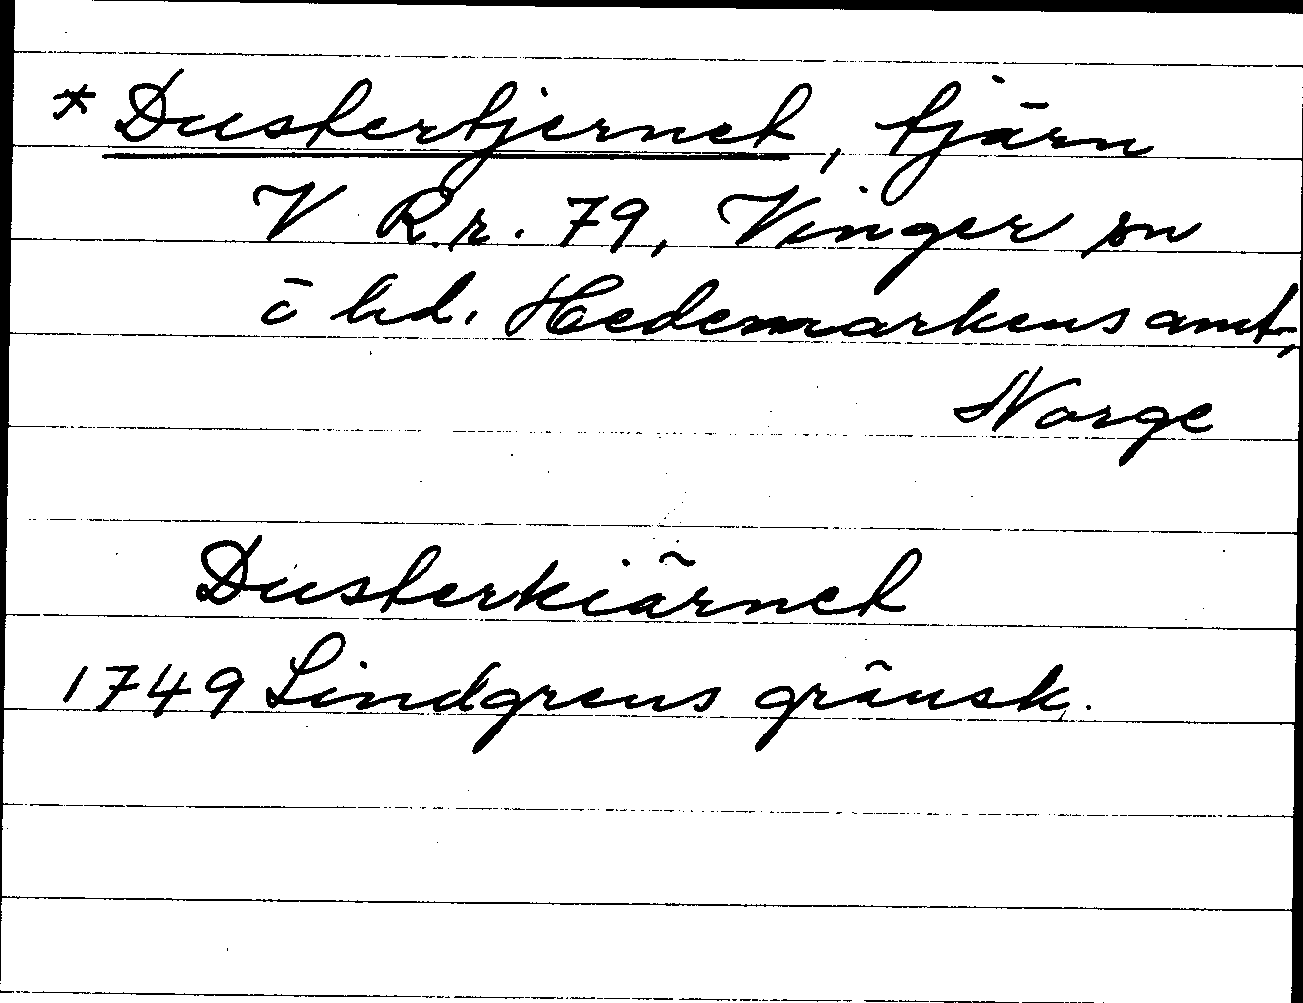 * Dustertjernet, tjärn
V R.r. 79, Vinger sn
ö hd. Hedemarkens amt,
Norge
Dusterkiärnet
1749 Lindgrens gränsk.